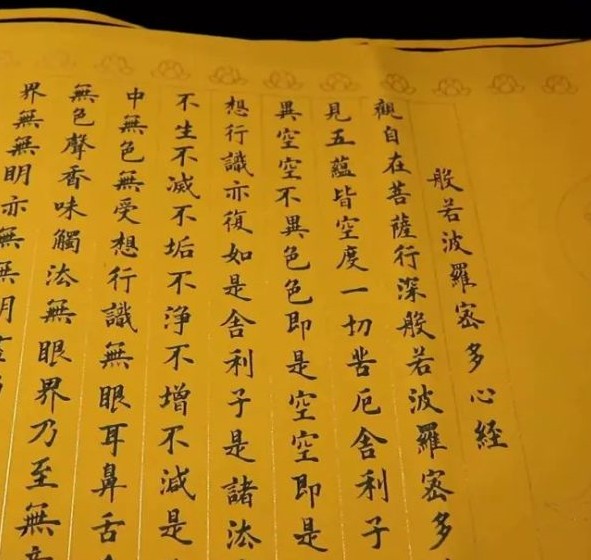 般若波羅蜜多心經
觀自在菩薩行深般若波羅蜜多
見五蘊皆空度一切苦厄舍利子
異空空不異色色即是空空即是
想行識亦復如是舍利子是諸法
不生不滅不垢不淨不增不減是
中無色無受想行識無眼耳鼻舌
無色聲香味觸法無眼界乃至無
界無無明亦無